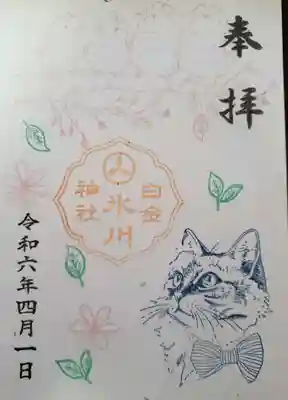 奉拝
白金
氷川
神社
令和六年四月一日